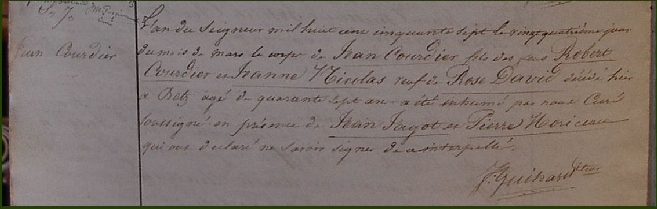 Sre 70
Jean Courdier
L'an du Seigneur mil huit cent cinquante sept le vingt quatrième jour
du mois de mars le corps de Jean Courdier fils des feus Robert
Courdier et Jeanne Nicolas veuf de Rose David décédé hier
à agé de quarante sept ans a été inhumé par nous Curé
soussigné en présence de Jean Jagot et Pierre Moriceau
qui ont déclaré ne savoir signer de ce interpellés.
J. Guihard